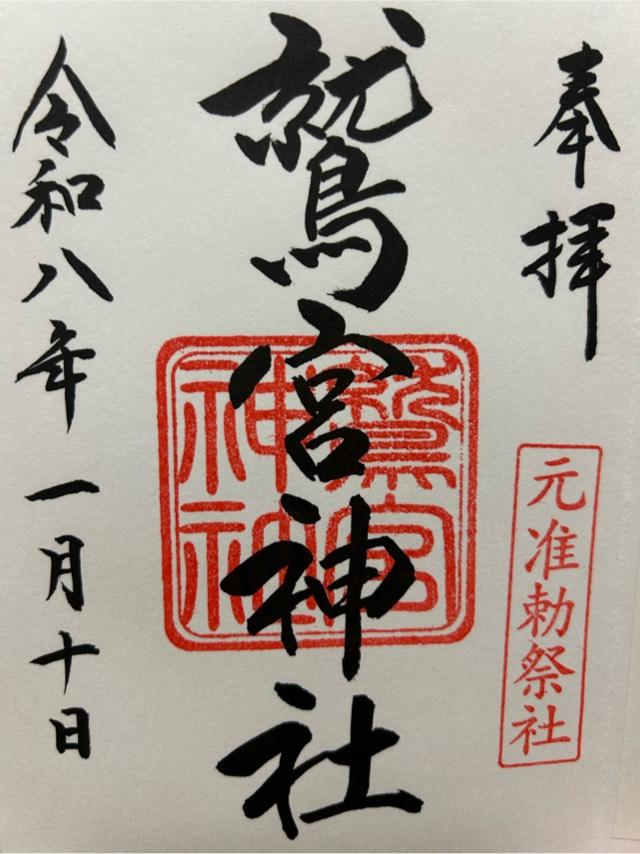 奉拝
元准勅祭社
鷲宮神社
鷲宮
神社
令和八年一月十日